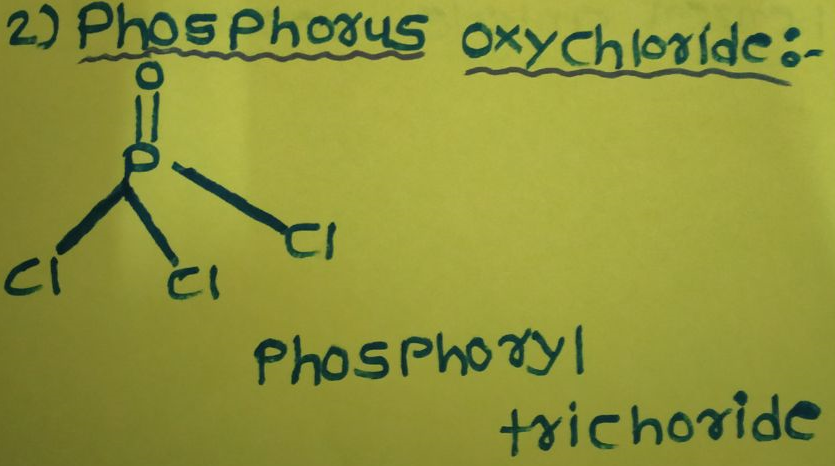 2) Phosphorus oxychloride:-
O
P
Cl Cl Cl
Phosphoryl
trichoride